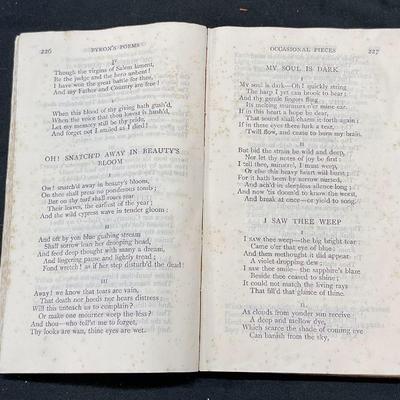 226 BYRON'S POEMS
IV
Though the virgins of Salem lament,
Be the judge and the hero unbent!
I have won the great battle for thee,
And my Father and Country are free!
V
When this blood of thy giving hath gush'd,
When the voice that thou lovest is hush'd,
Let my memory still be thy pride,
And forget not I smiled as I died!
OH! SNATCH'D AWAY IN BEAUTY'S
BLOOM
I
Oh! snatch'd away in beauty's bloom,
On thee shall press no ponderous tomb;
But on thy turf shall roses rear
Their leaves, the earliest of the year;
And the wild cypress wave in tender gloom:
II
And oft by yon blue gushing stream
Shall sorrow lean her drooping head,
And feed deep thought with many a dream,
And lingering pause and lightly tread;
Fond wretch! as if her step disturb'd the dead!
III
Away! we know that tears are vain,
That death nor heeds nor hears distress:
Will this unteach us to complain?
Or make one mourner weep the less?
And thou—who tell'st me to forget,
Thy looks are wan, thine eyes are wet.
OCCASIONAL PIECES 227
MY SOUL IS DARK
I
My soul is dark—Oh! quickly string
The harp I yet can brook to hear;
And let thy gentle fingers fling
Its melting murmurs o'er mine ear.
If in this heart a hope be dear,
That sound shall charm it forth again:
If in these eyes there lurk a tear,
'Twill flow, and cease to burn my brain.
II
But bid the strain be wild and deep,
Nor let thy notes of joy be first:
I tell thee, minstrel, I must weep,
Or else this heavy heart will burst;
For it hath been by sorrow nursed,
And ach'd in sleepless silence long;
And now 'tis doom'd to know the worst,
And break at once—or yield to song.
I SAW THEE WEEP
I
I saw thee weep—the big bright tear
Came o'er that eye of blue:
And then methought it did appear
A violet dropping dew;
I saw thee smile—the sapphire's blaze
Beside thee ceased to shine;
It could not match the living rays
That fill'd that glance of thine.
II
As clouds from yonder sun receive
A deep and mellow dye,
Which scarce the shade of coming eve
Can banish from the sky,